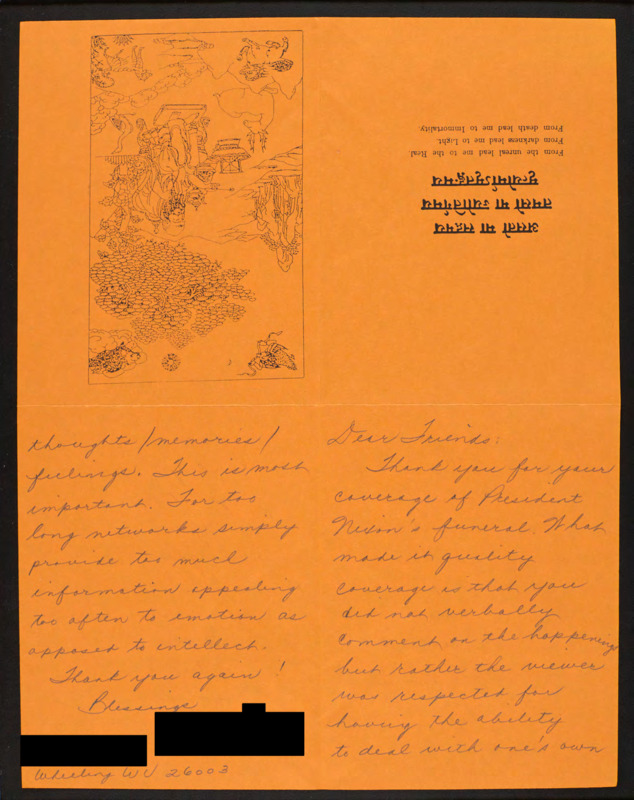 असतो मा सद्गमय
तमसो मा ज्योतिर्गमय
मृत्योर्माऽमृतङ्गमय
From the unreal lead me to the Real
From darkness lead me to Light.
From death lead me to Immortality.
Dear Friends:
Thank you for your
coverage of President
Nixon's funeral. What
made it quality
coverage is that you
did not verbally
comment on the happenings
but rather the viewer
was respected for
having the ability
to deal with one's own
thoughts/memories/
feelings. This is most
important. For too
long networks simply
provide too much
information appealing
too often to emotion as
opposed to intellect.
Thank you again!
Blessings
Wheeling WV 26003